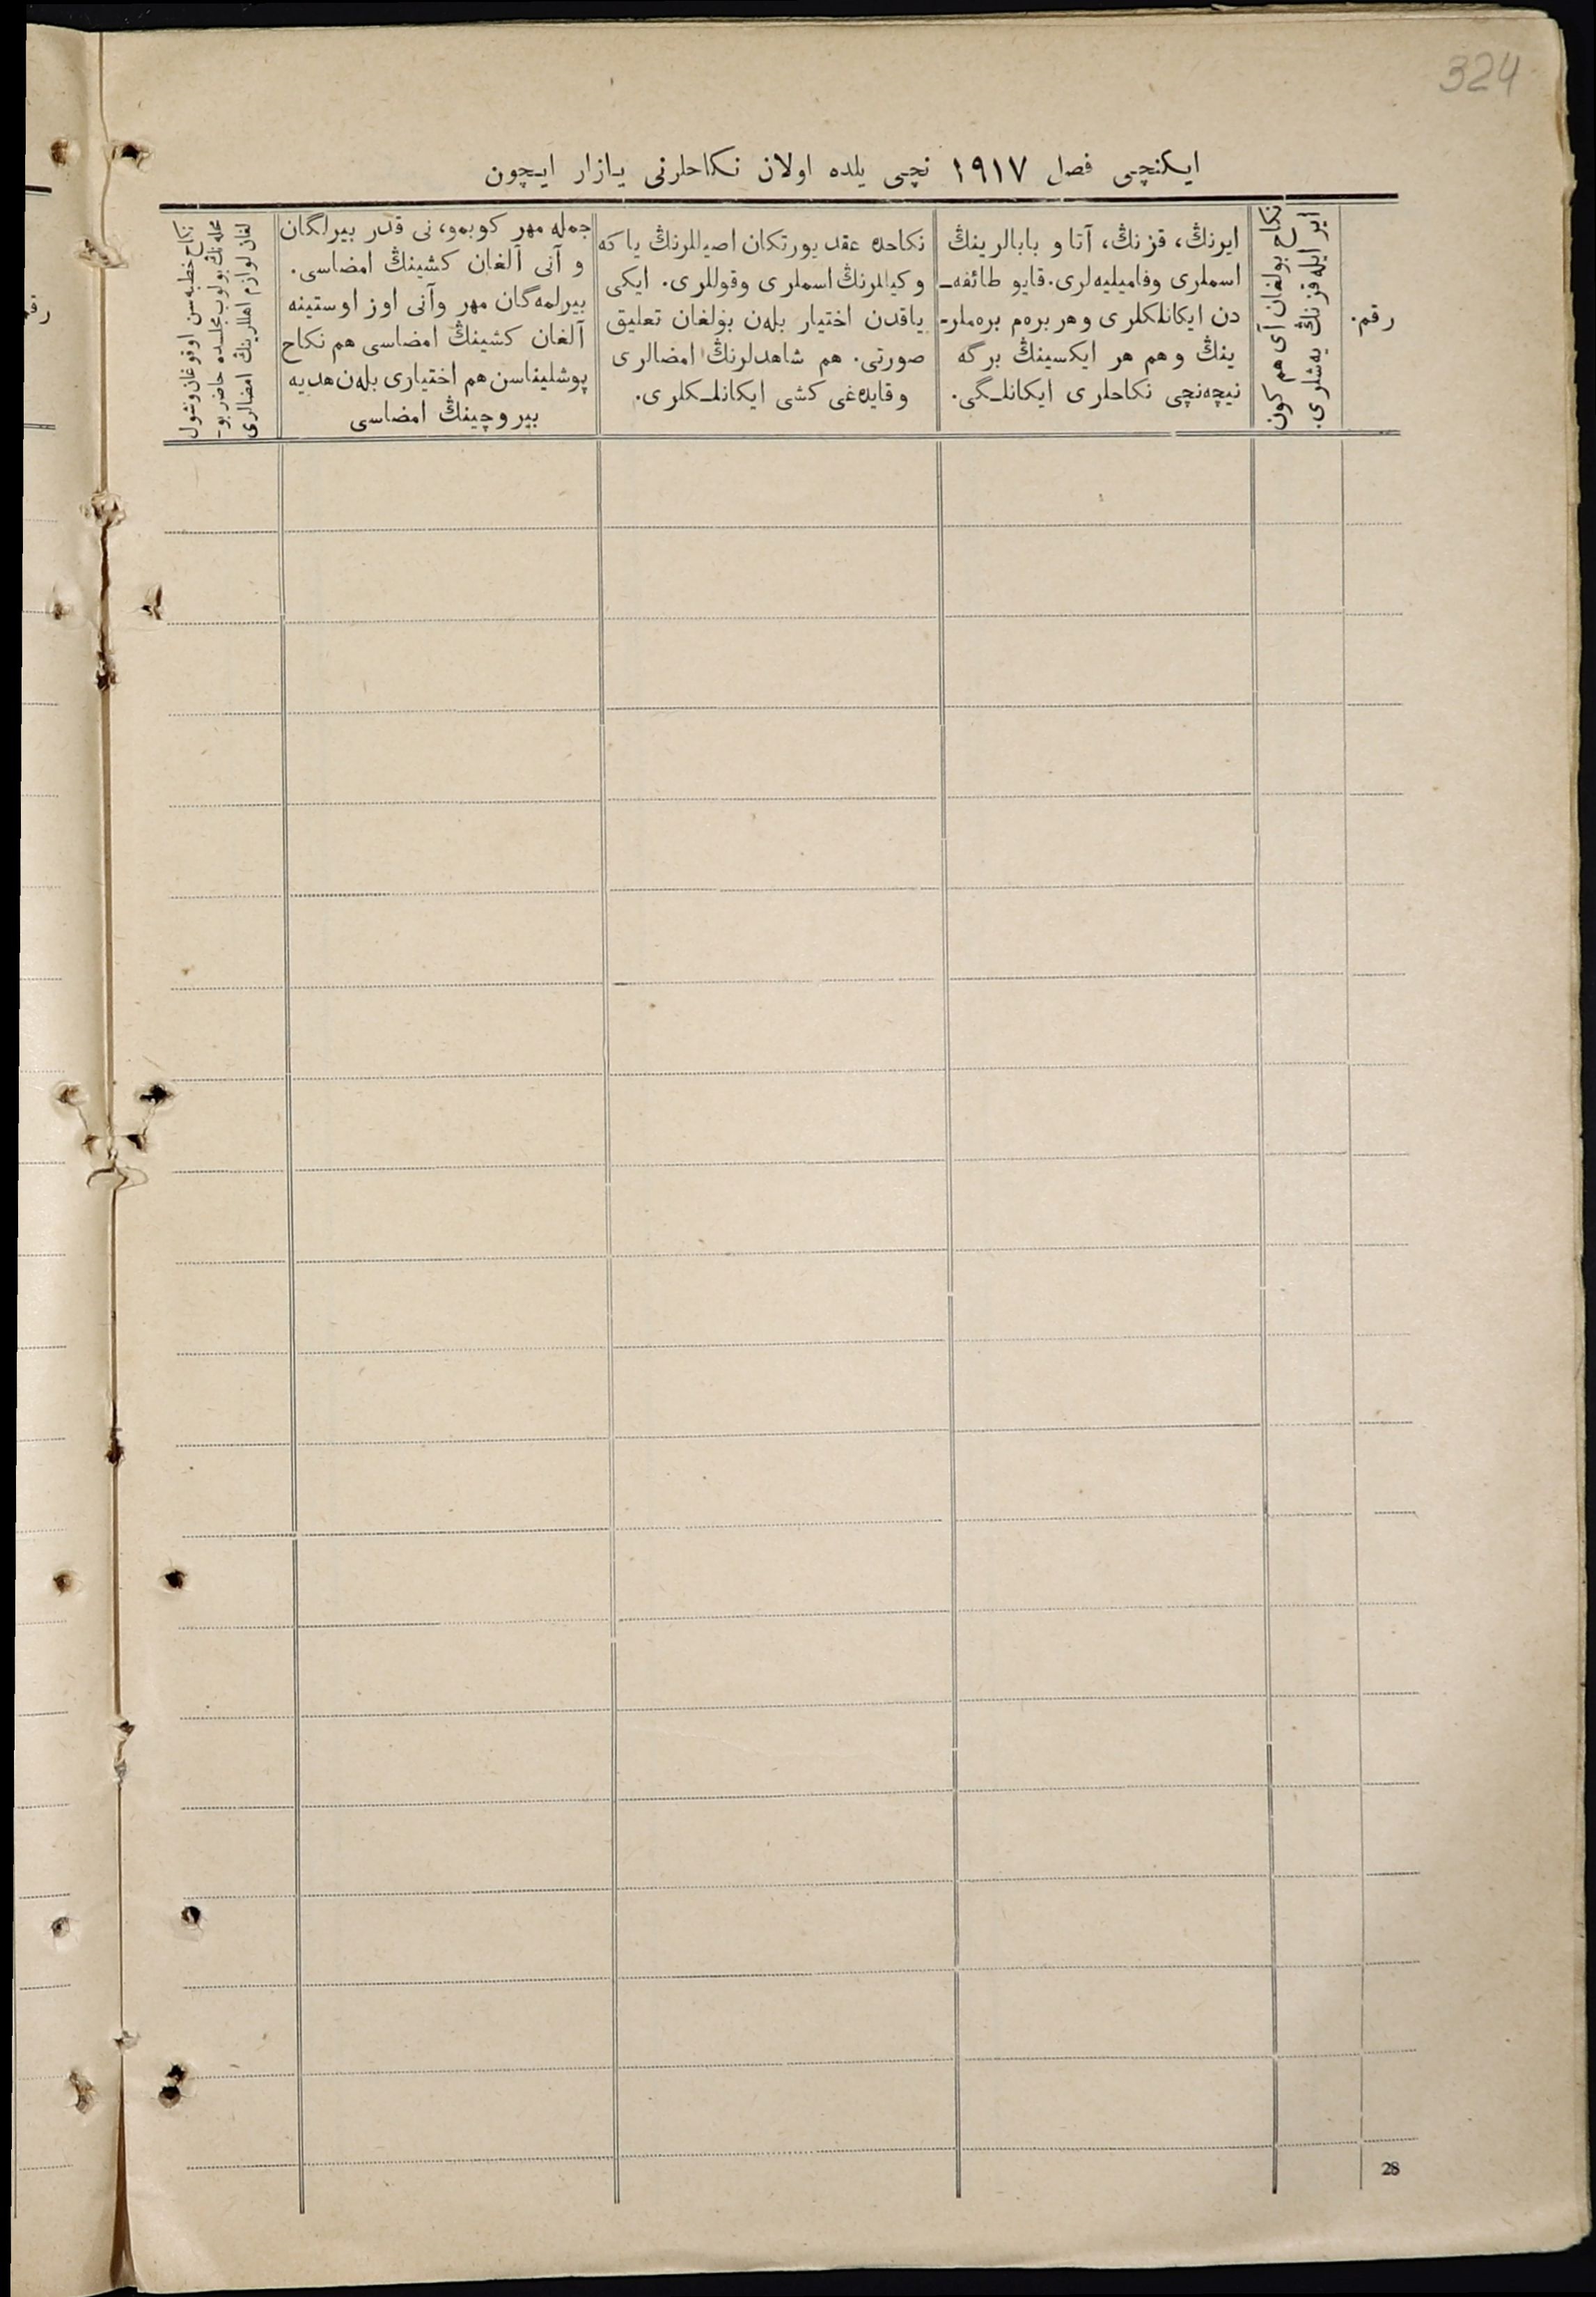 324
ایكنچی فصل ١٩١٧ نچی یلده اولان نكاحلرنی یازار ایچون
رقم.
نكاح بولغان آی هم كون
ایر ایله قزنڭ یه‌شلری.
ایرنڭ، قزنڭ، آتا و بابالرینڭ
اسملری وفامیلیه‌لری. قایو طائفه‌ـ
دن ایكانلكلری وهر بره‌م بره‌ملرـ
ینڭ وهم هر ایكسینڭ برگه
نیچه‌نچی نكاحلری ایكانلـگی.
نكاحده عقد یورتكان اصیللرنڭ یاكه
وكیللرنڭ اسملری وقوللری. ایكی
یاقدن اختیار بله‌ن بولغان تعلیق
صورتی. هم شاهدلرنڭ امضالری
وقایده‌غی كشی ایكانلـكلری.
جمله مهر كوبمو، نی قدر بیرلگان
و آنی آلغان كشینڭ امضاسی.
بیرلمه‌گان مهر وآنی اوز اوستینه
آلغان كشینڭ امضاسی هم نكاح
پوشلیناسن هم اختیاری بله‌ن هدیه
بیروچینڭ امضاسی
نكاح خطبه‌سن اوقوغان وشول
محله‌نڭ بولوب مجلسده حاضر بوـ
لغان لوازم اهللرینڭ امضالری
رقم
28